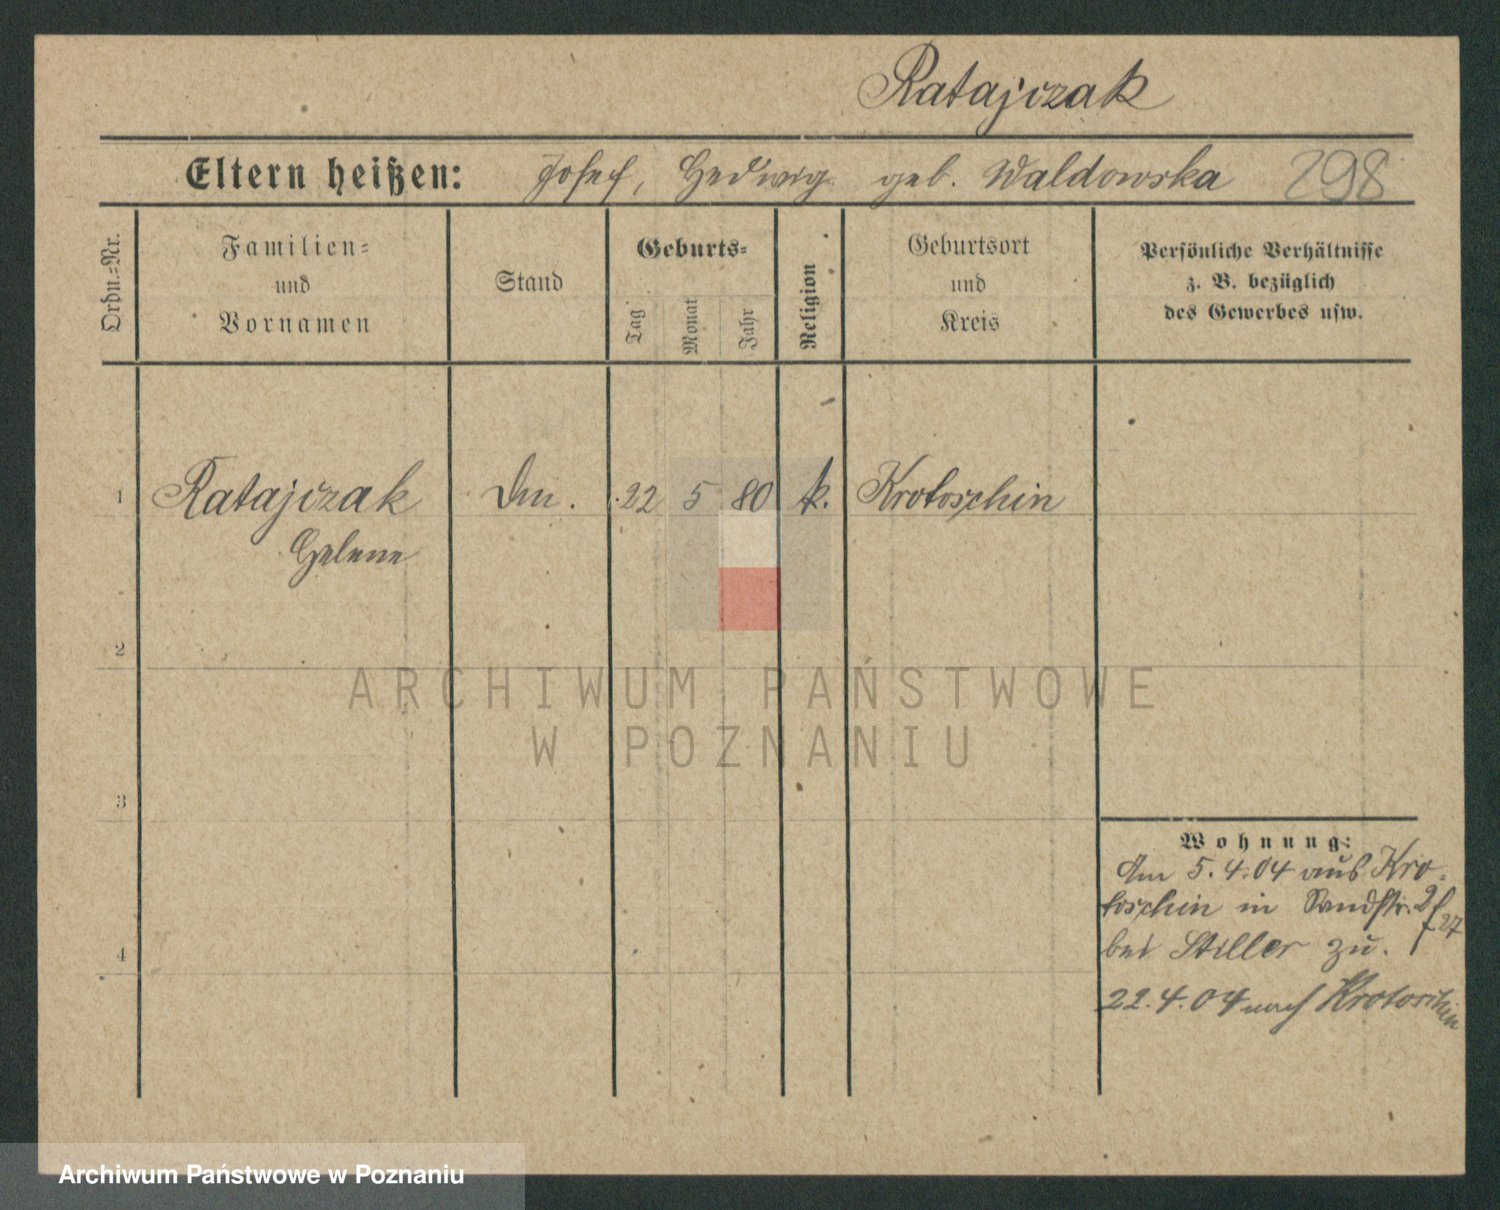 Ratajczak
Eltern heißen: Josef, Hedwig geb. Waldowska 298
Ordn.=Nr.
Familien=
und
Vornamen
Stand
Geburts=
Tag
Monat
Jahr
Religion
Geburtsort
und
Kreis
Persönliche Verhältnisse
z. B. bezüglich
des Gewerbes usw.
1 Ratajczak 22 5 80 k. Krotoschin
Helene
2
ARCHIWUM PAŃSTWOWE
W POZNANIU
3
Wohnung:
Am 5.4.04 aus Kro-
toschin in Sandstr.
bei Stiller zu.
4
22.4.04 nach Krotoschin
Archiwum Państwowe w Poznaniu